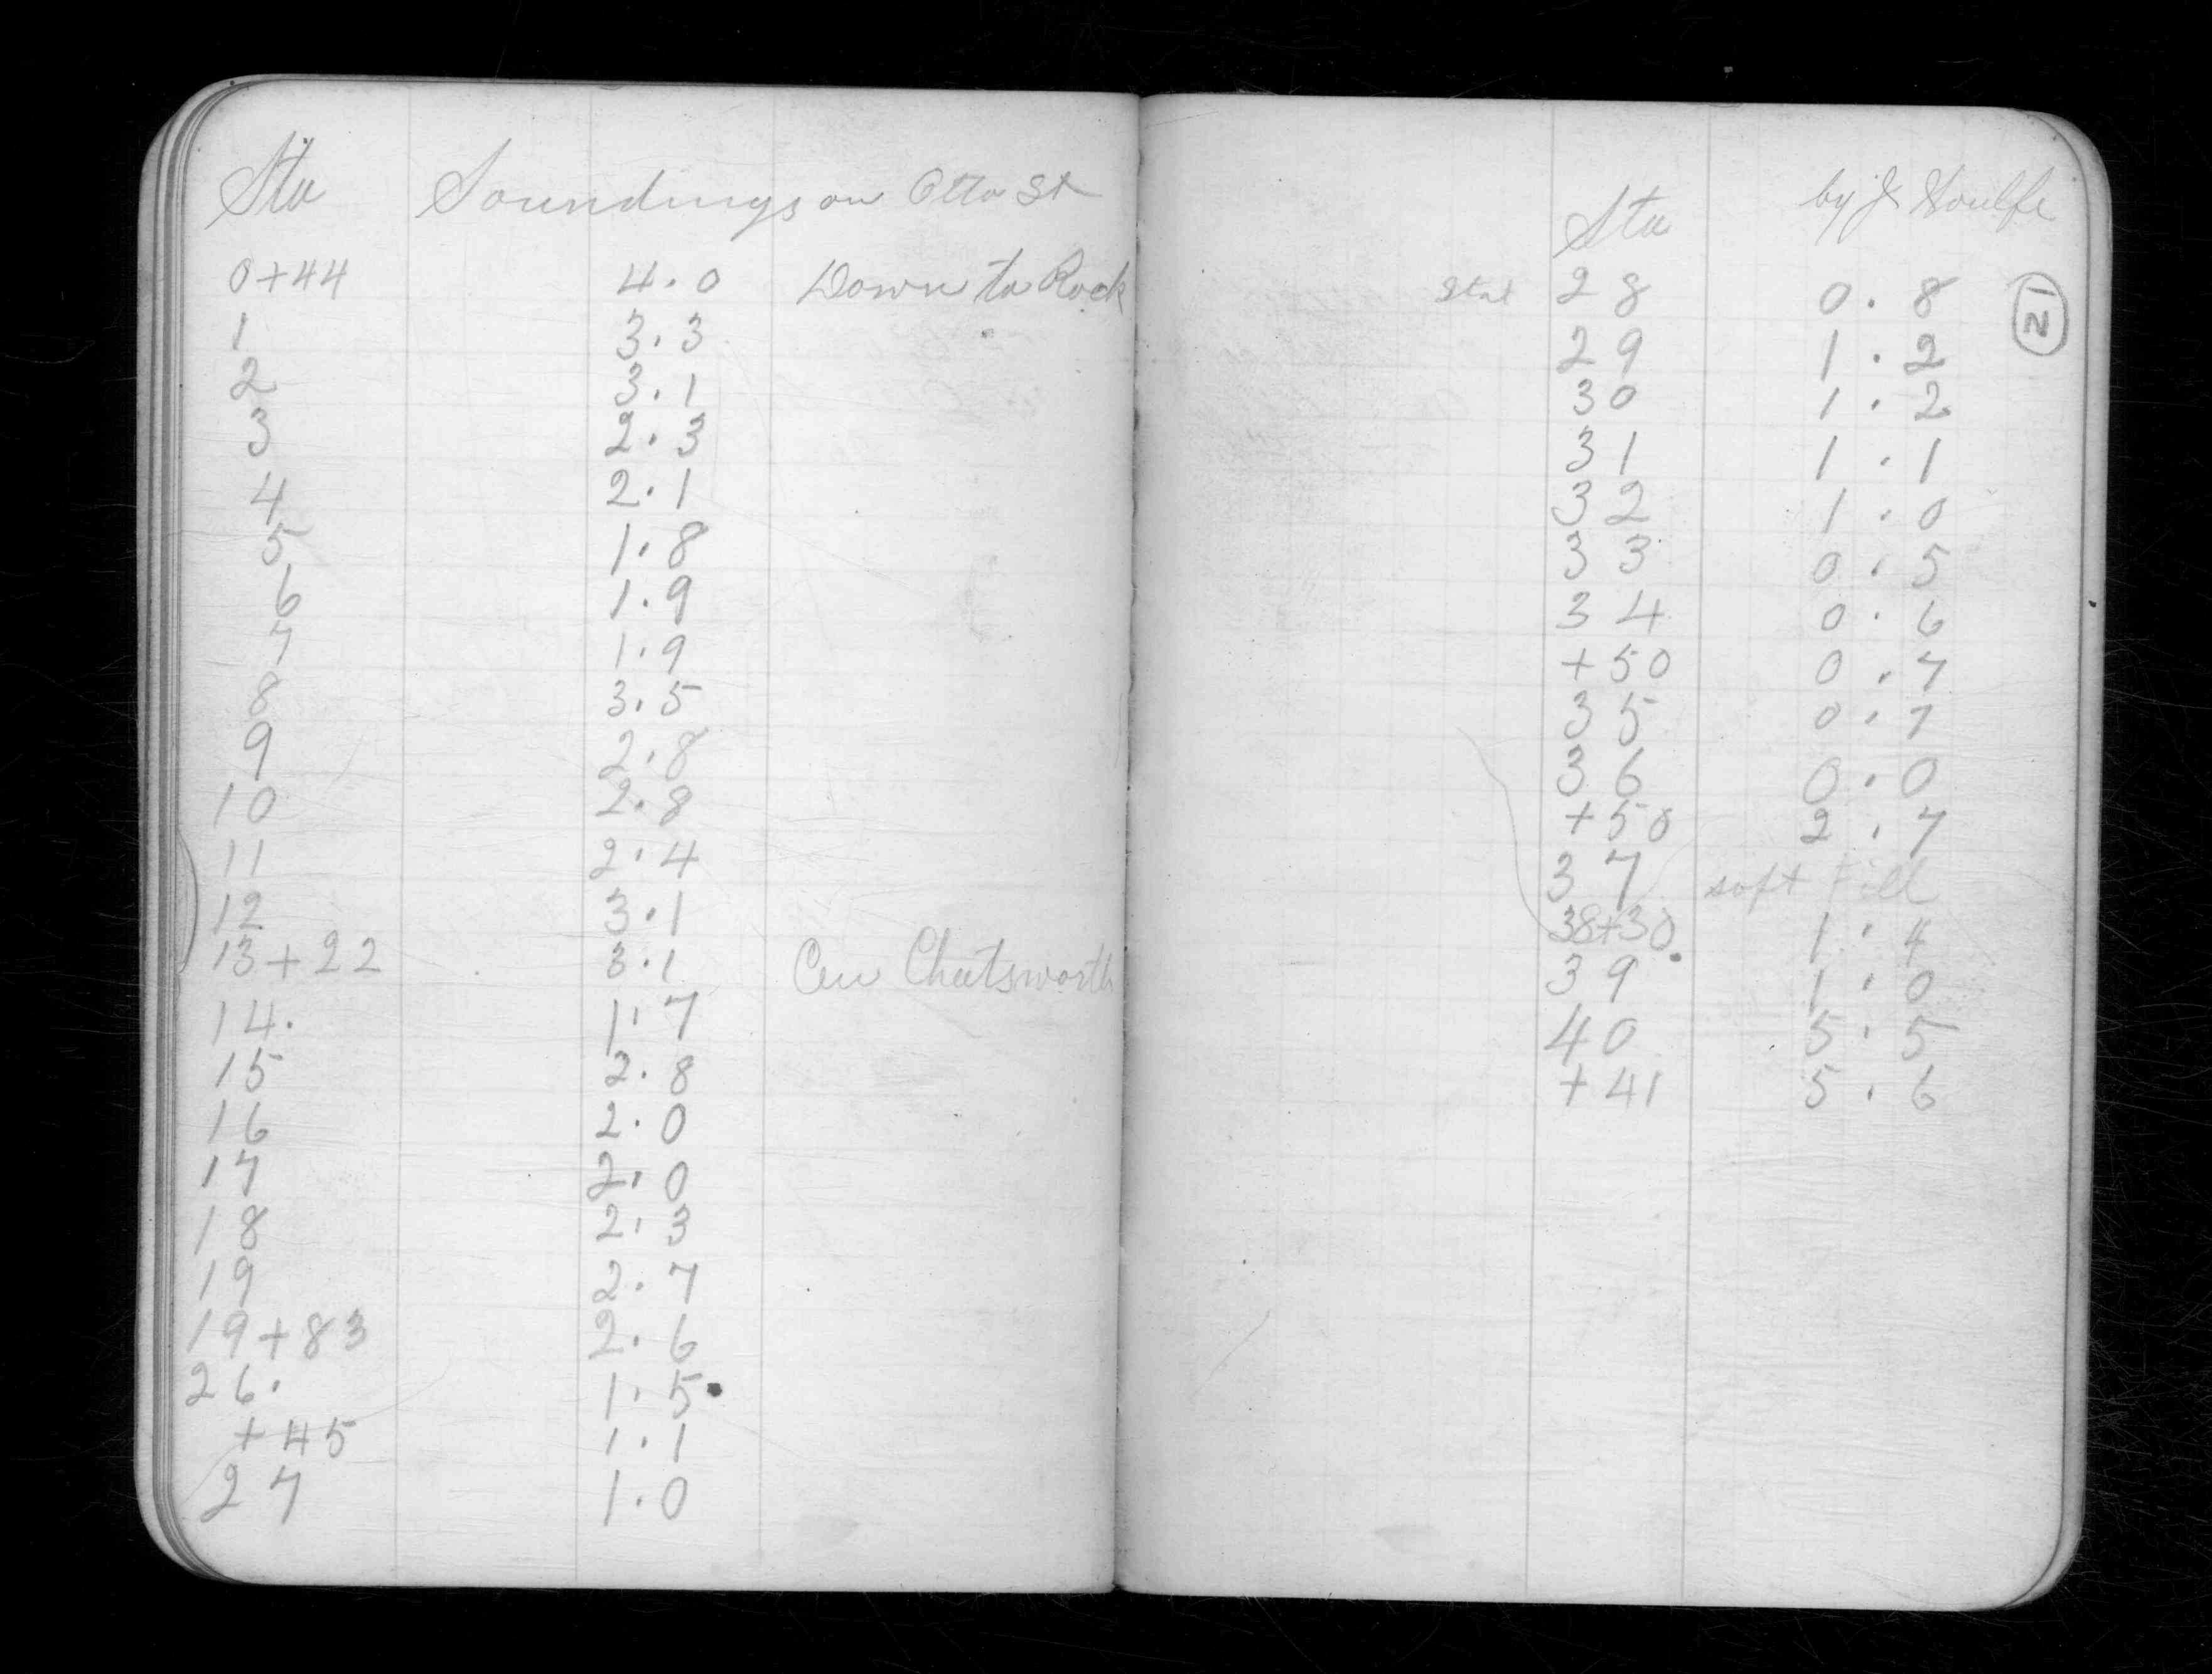 Sta Soundings on Otto St
0+44 4.0 Down to Rock
1 3.3
2 3.1
3 2.3
4 2.1
5 1.8
6 1.9
7 1.9
8 3.5
9 2.8
10 2.8
11 2.4
12 3.1
13+22 3.1 Cen Chatsworth
14. 1.7
15 2.8
16 2.0
17 2.0
18 2.3
19 2.7
19+83 2.6
26. 1.5
+45 1.1
27 1.0
Sta by J
21
28 0.8
29 1.2
30 1.2
31 1.1
32 1.0
33 0.5
34 0.6
+50 0.7
35 0.7
36 0.0
+50 2.7
37 soft Fill
38+30 1.4
39 1.0
40 5.5
+41 5.6